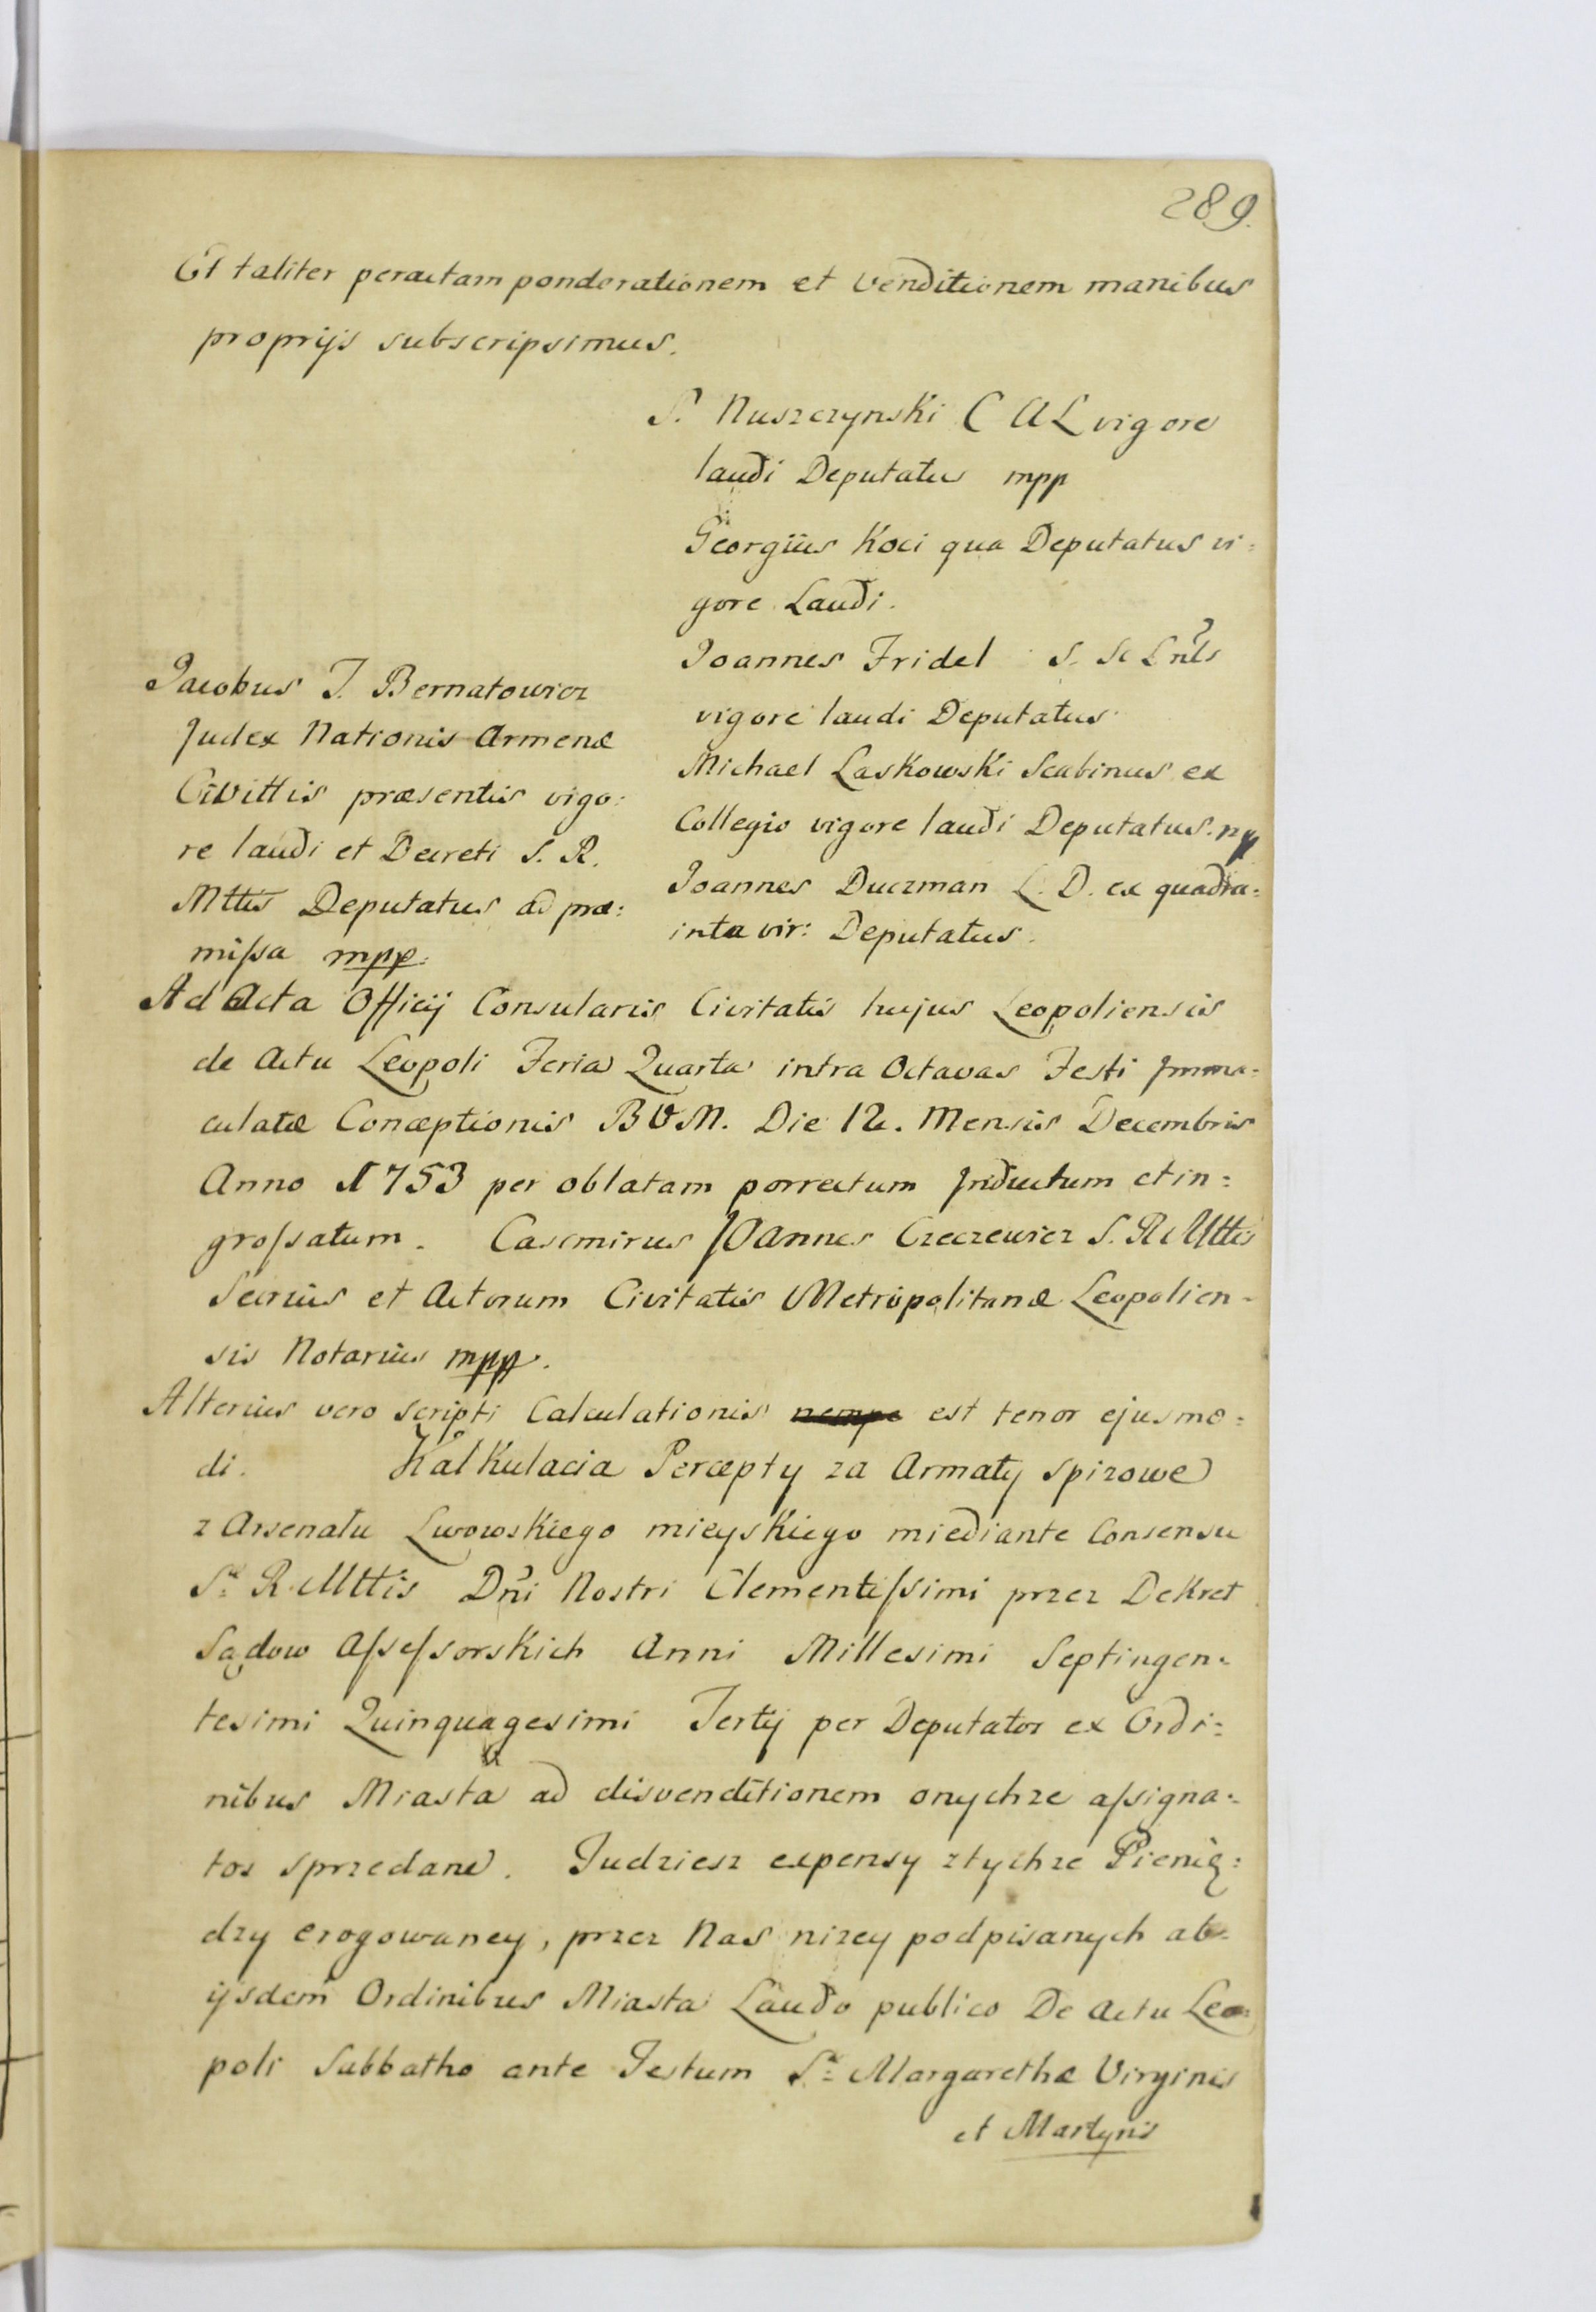 289.
Et taliter peractam ponderationem et venditionem manibus
proprijs subscripsimus.
S. Nuszczynski C A L vigore
laudi Deputatus mpp
Georgius Koci qua Deputatus vi:
gore Laudi.
Joannes Fridel S. Sc Lnls
vigore laudi Deputatus
Michael Laskowski Scabinus ex
Collegio vigore laudi Deputatus. mp
Joannes Duczman L. D. ex quadra:
inta vir: Deputatus.
Jacobus J. Bernatowicz
Judex Nationis Armenæ
Civittis præsentis vigo:
re laudi et Decreti S. R.
Mttis Deputatus ad præ:
missa mpp.
Ad Acta Officij Consularis Civitatis hujus Leopoliensis
de Actu Leopoli Feria Quarta intra Octavas Festi Imma:
culatæ Conceptionis B V M. Die 12. Mensis Decembris
Anno 1753 per oblatam porrectum Inductum et in:
grossatum. Casimirus Joannes Czeczewicz S. R Mttis
Secrius et Actorum Civitatis Metropolitanæ Leopolien-
sis Notarius mpp.
Alterius vero scripti Calculationis nempe est tenor ejusmo:
di. Kalkulacia Percepty za Armaty spizowe
z Arsenatu Lwowskiego mieyskiego miediante Consensu
Sæ R. Mttis Dni Nostri Clementissimi przez Dekret
Sądow Assessorskich Anni Millesimi Septingen:
tesimi Quinquagesimi Tertij per Deputatos ex Ordi:
nibus Miasta ad disvenditionem onychze assigna:
tos sprzedane. Tudziesz expensy z tychze Pienię:
dzy erogowaney, przez Nas nizey podpisanych ab
ijsdem Ordinibus Miasta Laudo publico De Actu Leo:
poli Sabbatho ante Festum Sæ Margarethæ Virginis
et Martyris